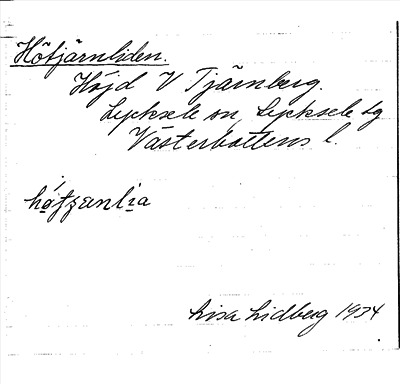 Hötjärnliden.
Höjd V Tjärnberg.
Lycksele sn, Lycksele lg
Västerbottens l.
Lisa Lidberg 1934